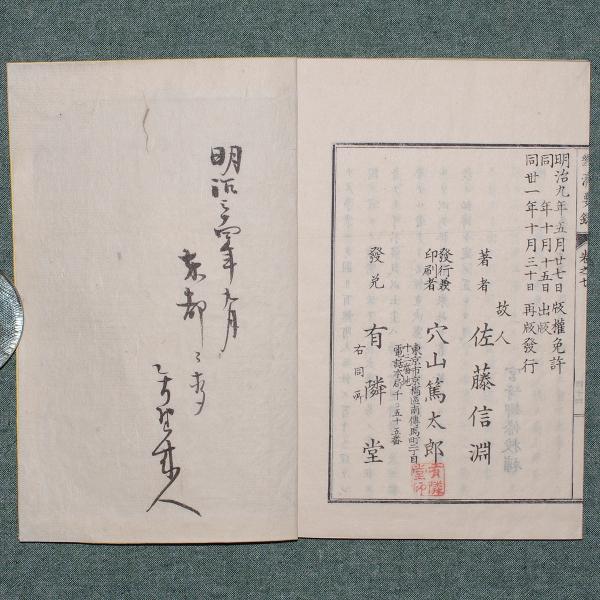 經濟要錄
卷之七
明治九年五月廿七日版權免許
同年十月十五日出版
同廿一年十月三十日再版發行
著者 故人 佐藤信淵
發行兼印刷者 穴山篤太郎
東京市京橋區南傳馬町二丁目
十三番地
電話本局千五十五番
發兌 有隣堂
右同所
有隣堂
明治三四年九月
東都
人